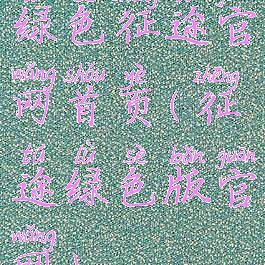 绿色征途官
wǎng shǒu yè zhēng
网首页(征
tú lǜ sè bǎn guān
途绿色版官
wǎng
网)